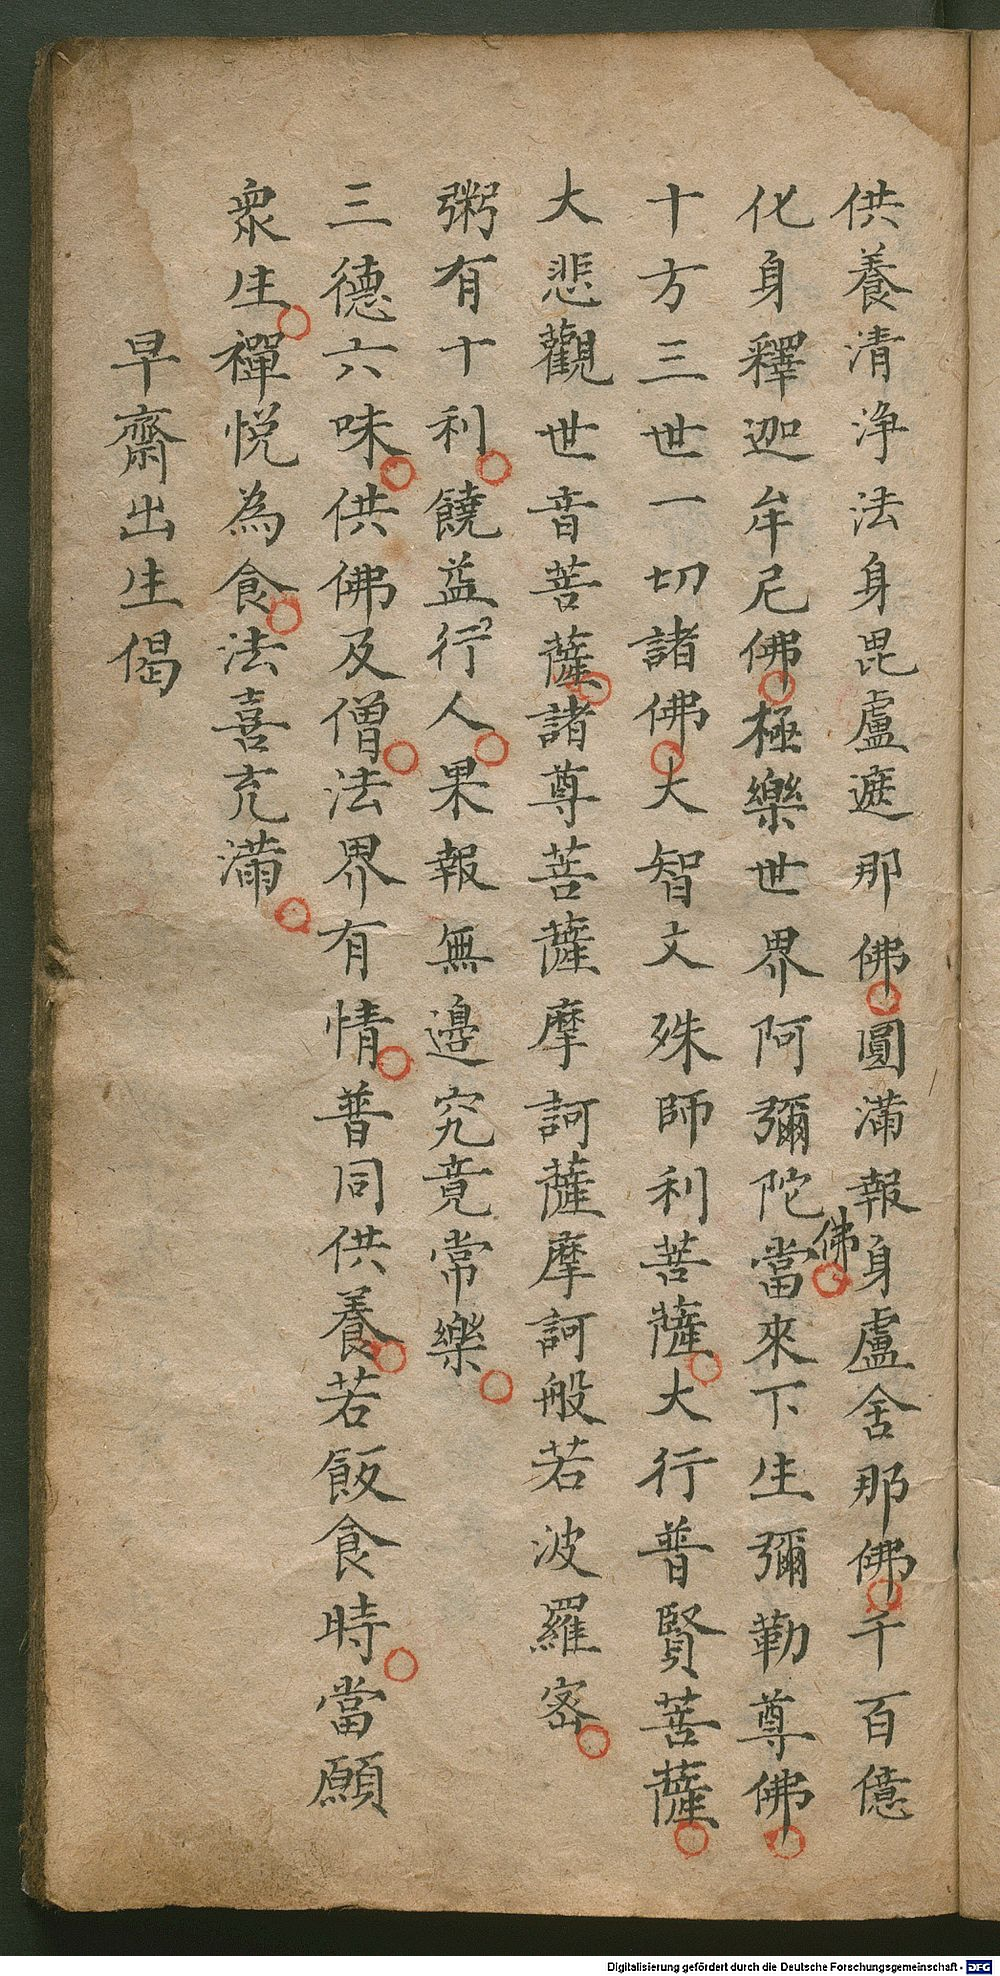 供養清淨法身毘盧遮那佛圓滿報身盧舍那佛千百億
化身釋迦牟尼佛極樂世界阿彌陀佛當來下生彌勒尊佛
十方三世一切諸佛大智文殊師利菩薩大行普賢菩薩
大悲觀世音菩薩諸尊菩薩摩訶薩摩訶般若波羅密
粥有十利饒益行人果報無邊究竟常樂
三德六味供佛及僧法界有情普同供養若飯食時當願
衆生禪悅為食法喜充滿
早齋出生偈
Digitalisierung gefördert durch die Deutsche Forschungsgemeinschaft - DFG